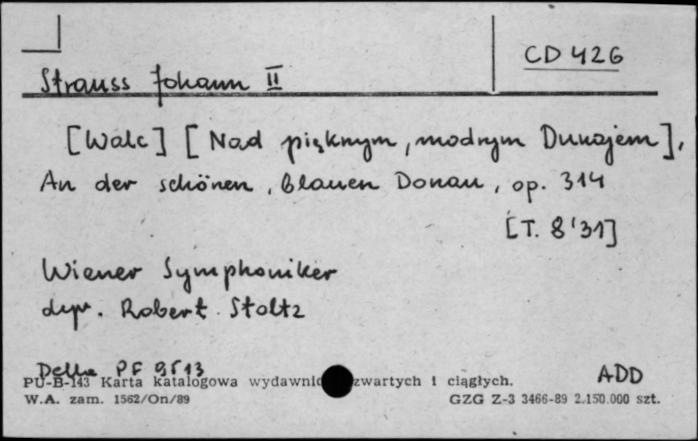 CD 426
Strauss Johann II
[Walc] [Nad pięknym, modrym Dunajem],
An der schönen, blauen Donau, op. 314
[T. 8'31]
Wiener Symphoniker
dyr. Robert Stoltz
Delta PF 9513 ADD
PU-B-143 Karta katalogowa wydawnic zwartych i ciągłych.
W.A. zam. 1562/On/89 GZG Z-3 3466-89 2.150.000 szt.